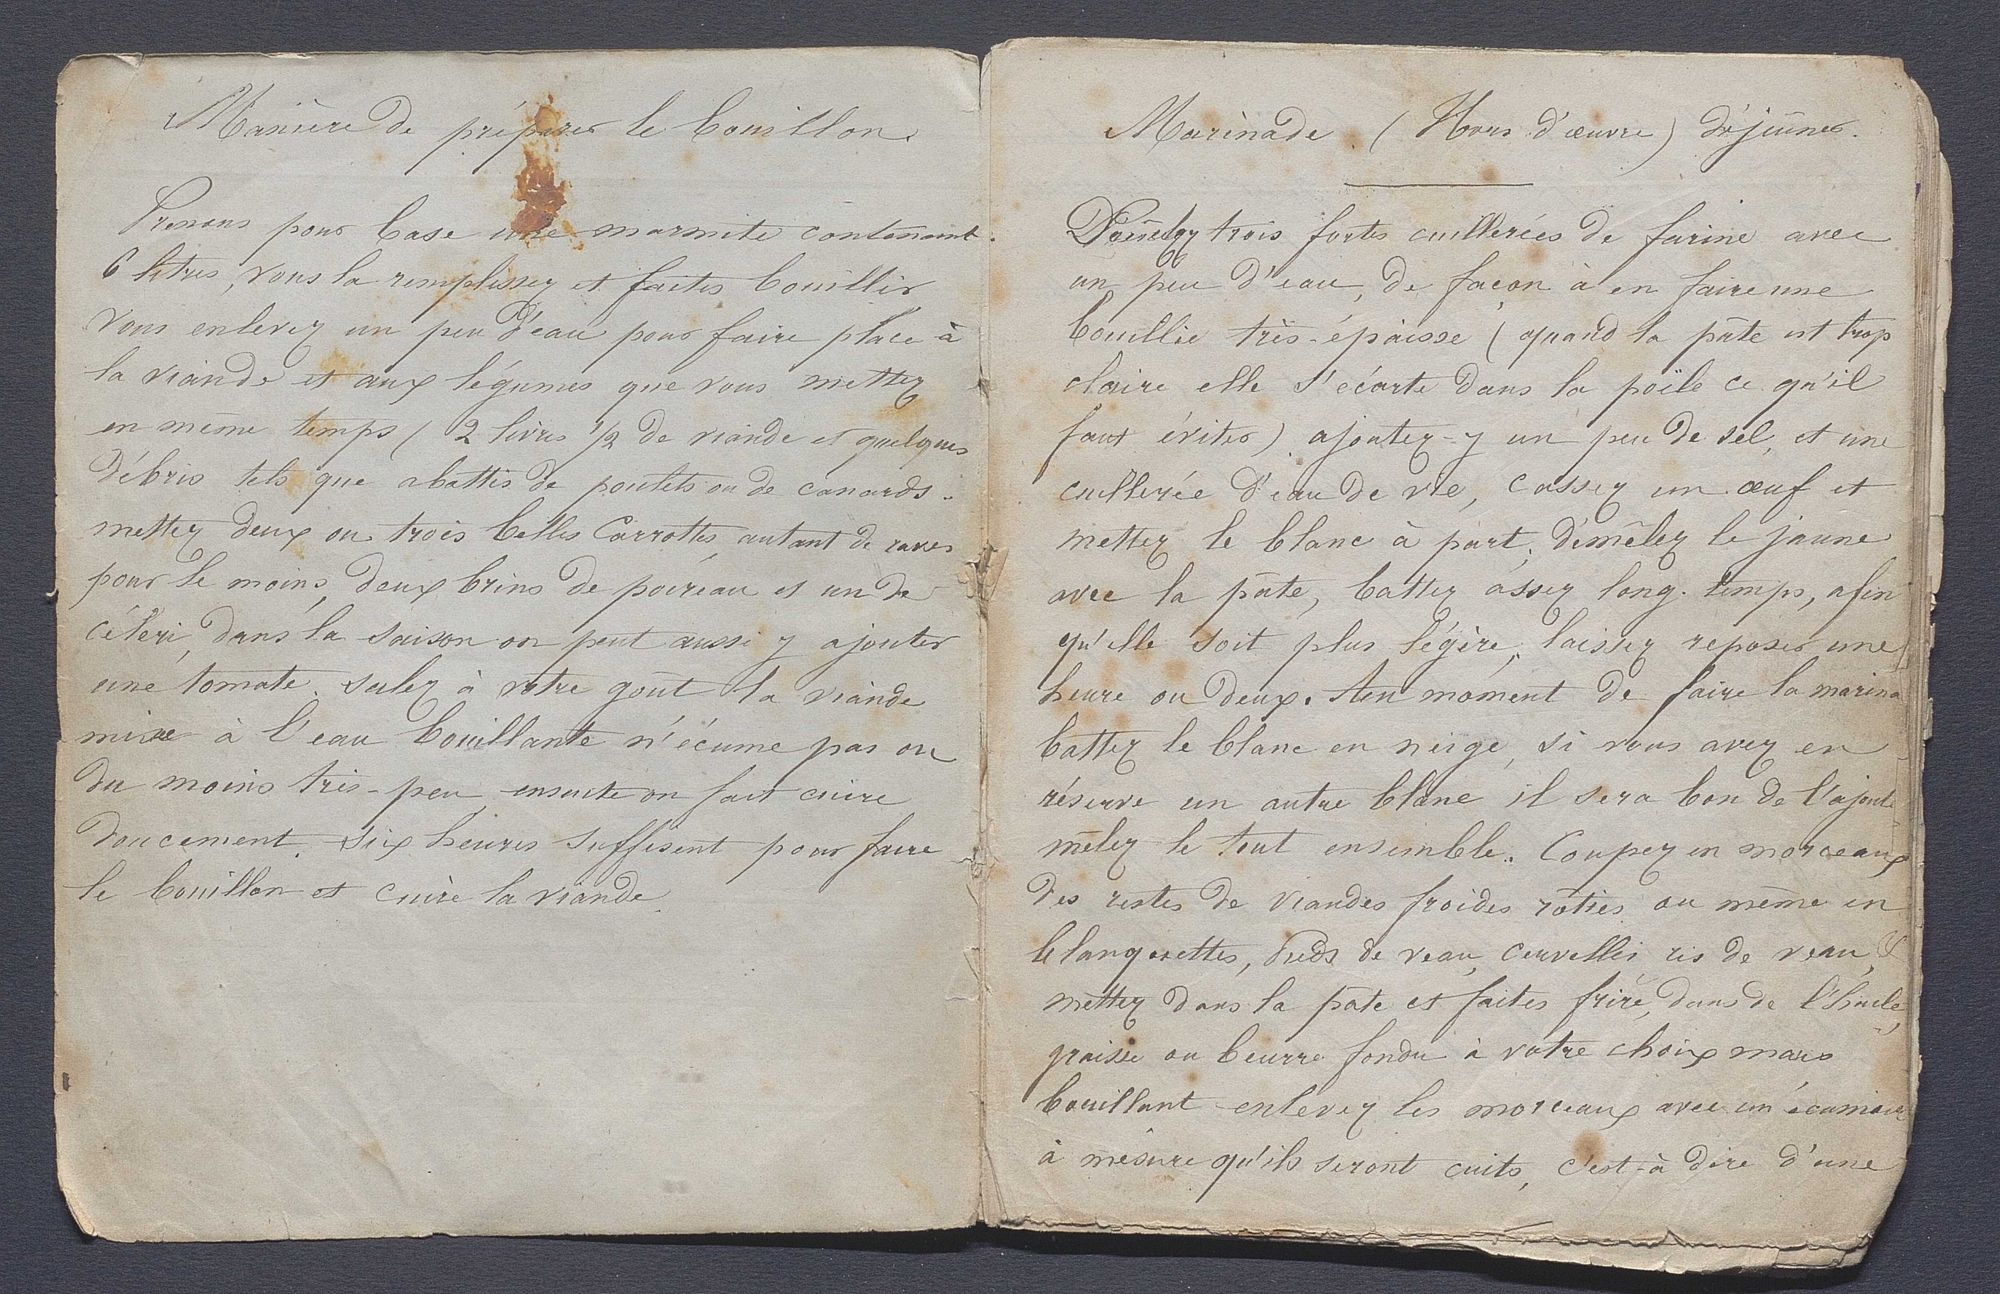 Manière de préparer le bouillon.
Prenons pour base une marmite contenant
6 litres, vous la remplissez et faites bouillir
vous enlevez un peu d'eau pour faire place à
la viande et aux légumes que vous mettez
en même temps ( 2 livres 1/2 de viande et quelques
débris tels que abattis de poulets ou de canards.
mettez deux ou trois belles Carrottes, autant de raves
pour le moins, deux brins de poireau et un de
céleri, dans la saison on peut aussi y ajouter
une tomate. salez à votre goût la viande
mise à l'eau bouillante n'écume pas ou
du moins très-peu, ensuite on fait cuire
doucement. six heures suffisent pour faire
le bouillon et cuire la viande.
Marinade (Hors d'œuvre) déjeûner.
trois fortes cuillerées de farine avec
un peu d'eau, de façon à en faire une
bouillie très-épaisse ( quand la pâte est trop
claire elle s'écarte dans la poële ce qu'il
faut éviter) ajoutez-y un peu de sel, et une
cuillerée d'eau de vie, cassez un œuf et
mettez le blanc à part, démêlez le jaune
avec la pâte, battez assez long-temps, afin
qu'elle soit plus légère, laissez reposer une
heure ou deux. Au moment de faire la marina
battez le blanc en neige, si vous avez en
réserve un autre blanc il sera bon de l'ajoute
mêlez le tout ensemble. Coupez en morceaux
des restes de viandes froides rôties ou même en
blanquettes, Pieds de veau, cervelles ris de veau, &
mettez dans la pâte et faites frire, dans de l'huile,
graisse ou beurre fondu à votre choix mais
bouillant enlevez les morceaux avec un écumoire
à mesure qu'ils seront cuits, c'est-à dire d'une